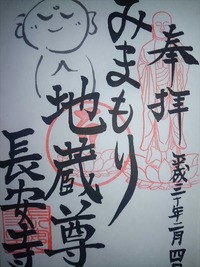 奉拝
平成三十年二月四日
みまもり
地蔵尊
長安寺